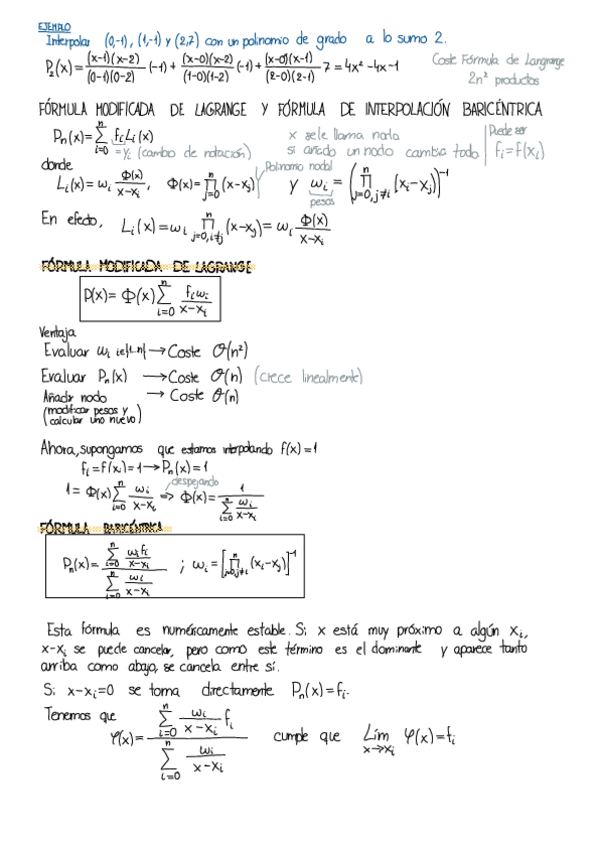 EJEMPLO
Interpolar (0,-1), (1,-1) y (2,7) con un polinomio de grado a lo sumo 2.
P₂(x) = (x-1)(x-2)/(0-1)(0-2) (-1) + (x-0)(x-2)/(1-0)(1-2) (-1) + (x-0)(x-1)/(2-0)(2-1) 7 = 4x² - 4x - 1
Coste Fórmula de Langrange
2n² productos
FÓRMULA MODIFICADA DE LAGRANGE Y FÓRMULA DE INTERPOLACIÓN BARICÉNTRICA
Pn(x) = ∑_{i=0}^{n} fi Li(x)
= yi (cambio de notación)
x se le llama nodo
si añado un nodo cambia todo
Puede ser
fi = f(xi)
donde
Li(x) = ωi Φ(x)/(x-xi), Φ(x) = ∏_{j=0}^{n} (x-xj)
Polinomio nodal
y ωi = (∏_{j=0, j≠i}^{n} (xi-xj))^{-1}
pesos
En efecto, Li(x) = ωi ∏_{j=0, i≠j}^{n} (x-xj) = ωi Φ(x)/(x-xi)
FÓRMULA MODIFICADA DE LAGRANGE
P(x) = Φ(x) ∑_{i=0}^{n} fi ωi/(x-xi)
Ventaja
Evaluar ωi i∈{1..n} → Coste O(n²)
Evaluar Pn(x) → Coste O(n) (crece linealmente)
Añadir nodo → Coste O(n)
(modificar pesos y
calcular uno nuevo)
Ahora, supongamos que estamos interpolando f(x) = 1
fi = f(xi) = 1 → Pn(x) = 1
despejando
1 = Φ(x) ∑_{i=0}^{n} ωi/(x-xi) => Φ(x) = 1/(∑_{i=0}^{n} ωi/(x-xi))
FÓRMULA BARICÉNTRICA
Pn(x) = (∑_{i=0}^{n} ωi fi/(x-xi))/(∑_{i=0}^{n} ωi/(x-xi)) ; ωi = [∏_{j=0, j≠i}^{n} (xi-xj)]^{-1}
Esta fórmula es numéricamente estable. Si x está muy próximo a algún xi,
x-xi se puede cancelar, pero como este término es el dominante y aparece tanto
arriba como abajo, se cancela entre sí.
Si x-xi=0 se toma directamente Pn(x) = fi.
Tenemos que φ(x) = (∑_{i=0}^{n} ωi/(x-xi) fi)/(∑_{i=0}^{n} ωi/(x-xi)) cumple que Lim_{x→xi} φ(x) = fi